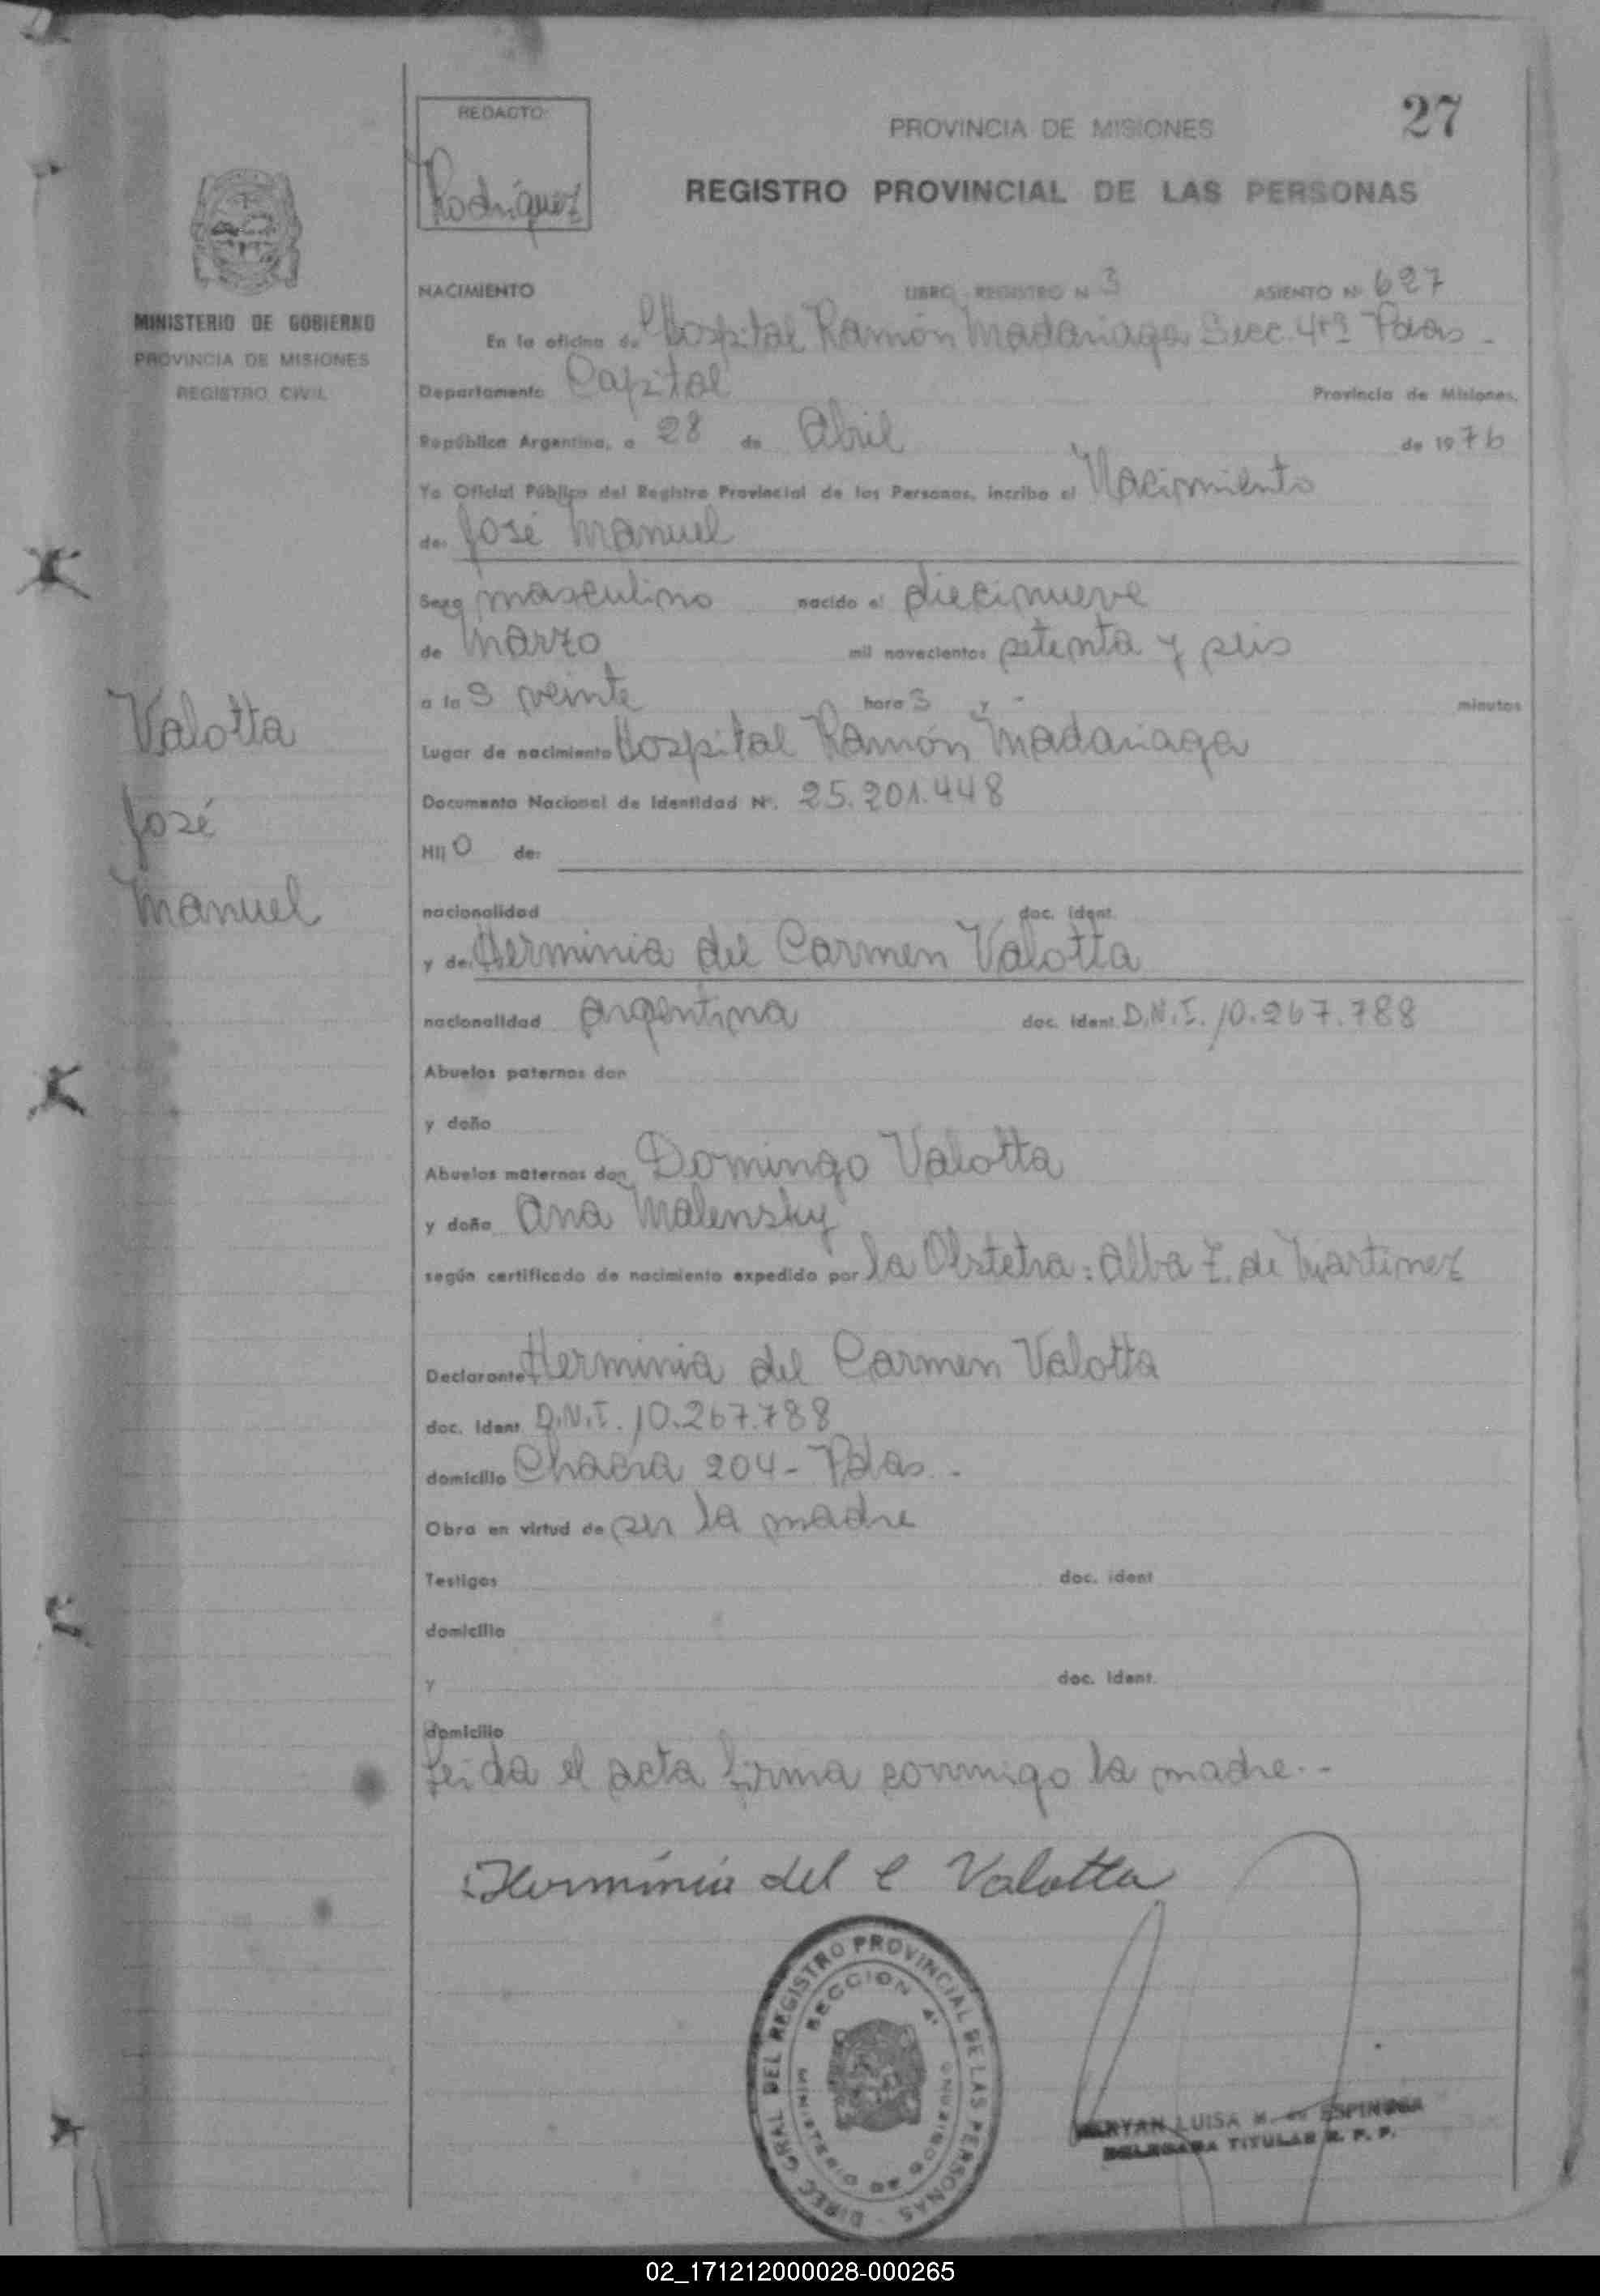 27
REDACTO:
Rodríguez
PROVINCIA DE MISIONES
REGISTRO PROVINCIAL DE LAS PERSONAS
MINISTERIO DE GOBIERNO
PROVINCIA DE MISIONES
REGISTRO CIVIL
NACIMIENTO LIBRO REGISTRO N 3 ASIENTO Nº 627
En la oficina de Hospital Ramón Madariaga Secc. 4ta Pdas -
Departamento Capital Provincia de Misiones,
República Argentina, a 28 de Abril de 1976
Yo Oficial Público del Registro Provincial de las Personas, inscribo el Nacimiento
de: José Manuel
Sexo masculino nacido el diecinueve
de Marzo mil novecientos setenta y seis
a la s veinte hora s y - minutos
Lugar de nacimiento Hospital Ramón Madariaga
Documento Nacional de Identidad Nº. 25.201.448
Hij o de:
nacionalidad doc. ident.
y de: Herminia del Carmen Valotta
nacionalidad argentina doc. ident. D.N.I. 10.267.788
Abuelos paternos don
y doña
Abuelos maternos don Domingo Valotta
y doña Ana Malensky
según certificado de nacimiento expedido por la Obstetra: Alba Z. de Martinez
Declarante Herminia del Carmen Valotta
doc. ident. D.N.I. 10.267.788
domicilio Chacra 204 - Pdas. -
Obra en virtud de ser la madre
Testigos doc. ident
domicilio
y doc. ident.
domicilio
Leida el acta firma conmigo la madre. -
Valotta
José
Manuel
Herminia del C Valotta
DIREC. GRAL. DEL REGISTRO PROVINCIAL DE LAS PERSONAS
SECCION 4ª
MINISTERIO DE GOBIERNO
LUISA M. de ESPINOSA
DELEGADA TITULAR R. P. P.
02_171212000028-000265